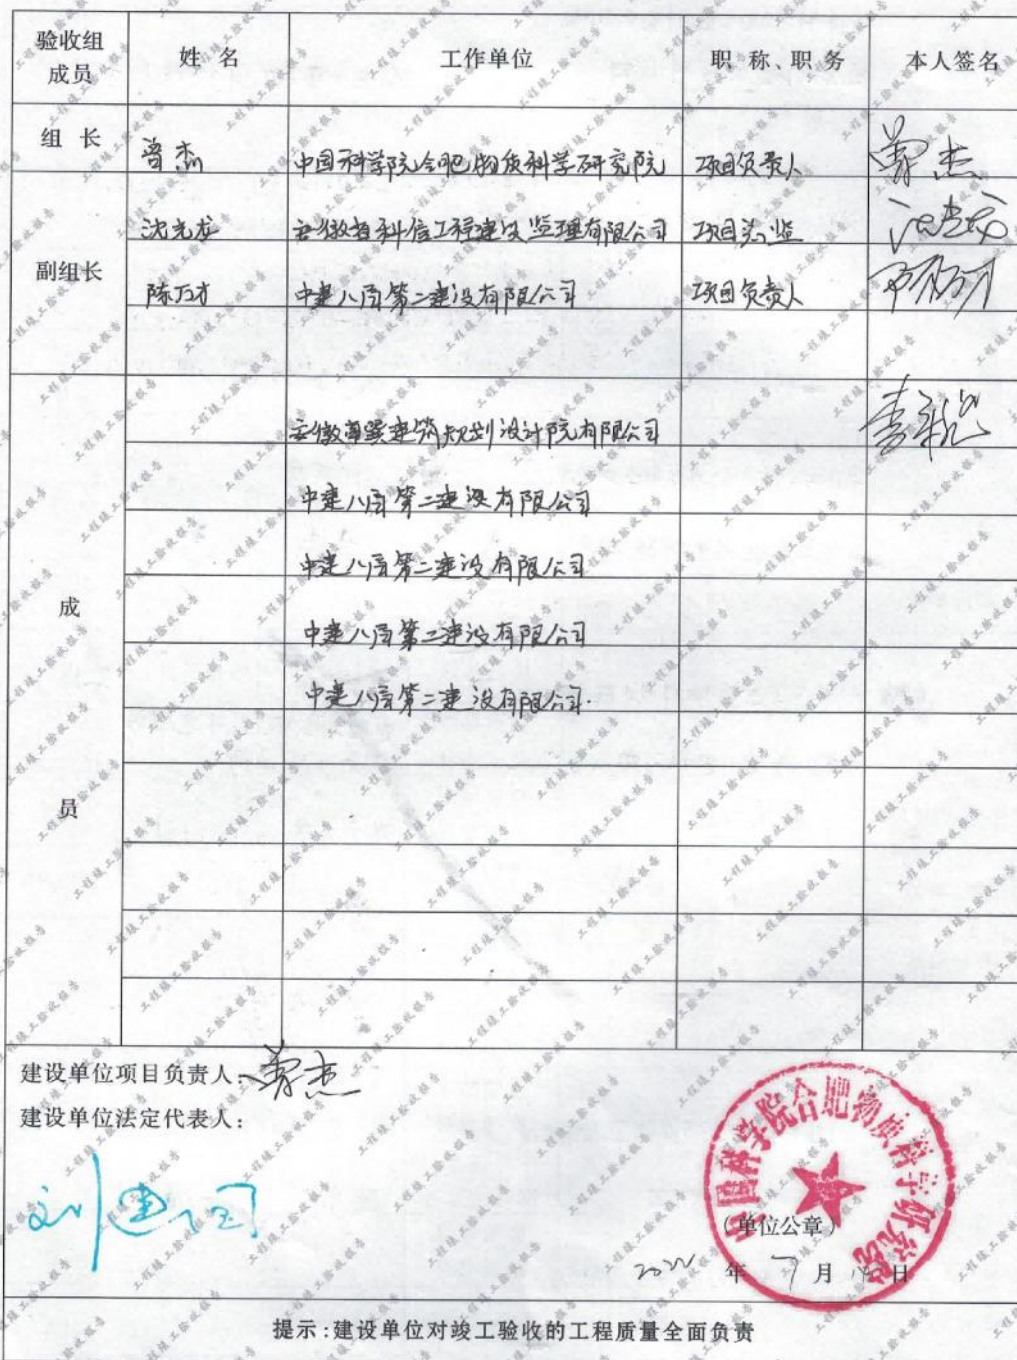 验收组成员 姓 名 工作单位 职 称、职 务 本人签名
组 长 曾杰 中国科学院合肥物质科学研究院 项目负责人 曾杰
副组长
沈光龙 安徽省科信工程建设监理有限公司 项目总监
陈万才 中建八局第二建设有限公司 项目负责人 陈万才
成员
建筑规划设计院有限公司
中建八局第二建设有限公司
中建八局第二建设有限公司
中建八局第二建设有限公司
中建八局第二建设有限公司.
建设单位项目负责人: 曾杰
建设单位法定代表人:
刘建国
中国科学院合肥物质科学研究院
(单位公章)
年 7 月 日
提示:建设单位对竣工验收的工程质量全面负责
工程竣工验收报告